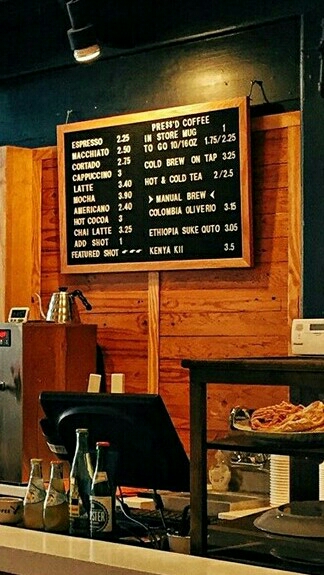 ESPRESSO 2.25
MACCHIATO 2.50
CORTADO 2.75
CAPPUCCINO 3
LATTE 3.40
MOCHA 3.90
AMERICANO 2.40
HOT COCOA 3
CHAI LATTE 3.25
ADD SHOT 1
FEATURED SHOT
PRESS'D COFFEE
IN STORE MUG 1
TO GO 10/16OZ 1.75/2.25
COLD BREW ON TAP 3.25
HOT & COLD TEA 2/2.5
> MANUAL BREW <
COLOMBIA OLIVERIO 3.15
ETHIOPIA SUKE QUTO 3.05
KENYA KII 3.5